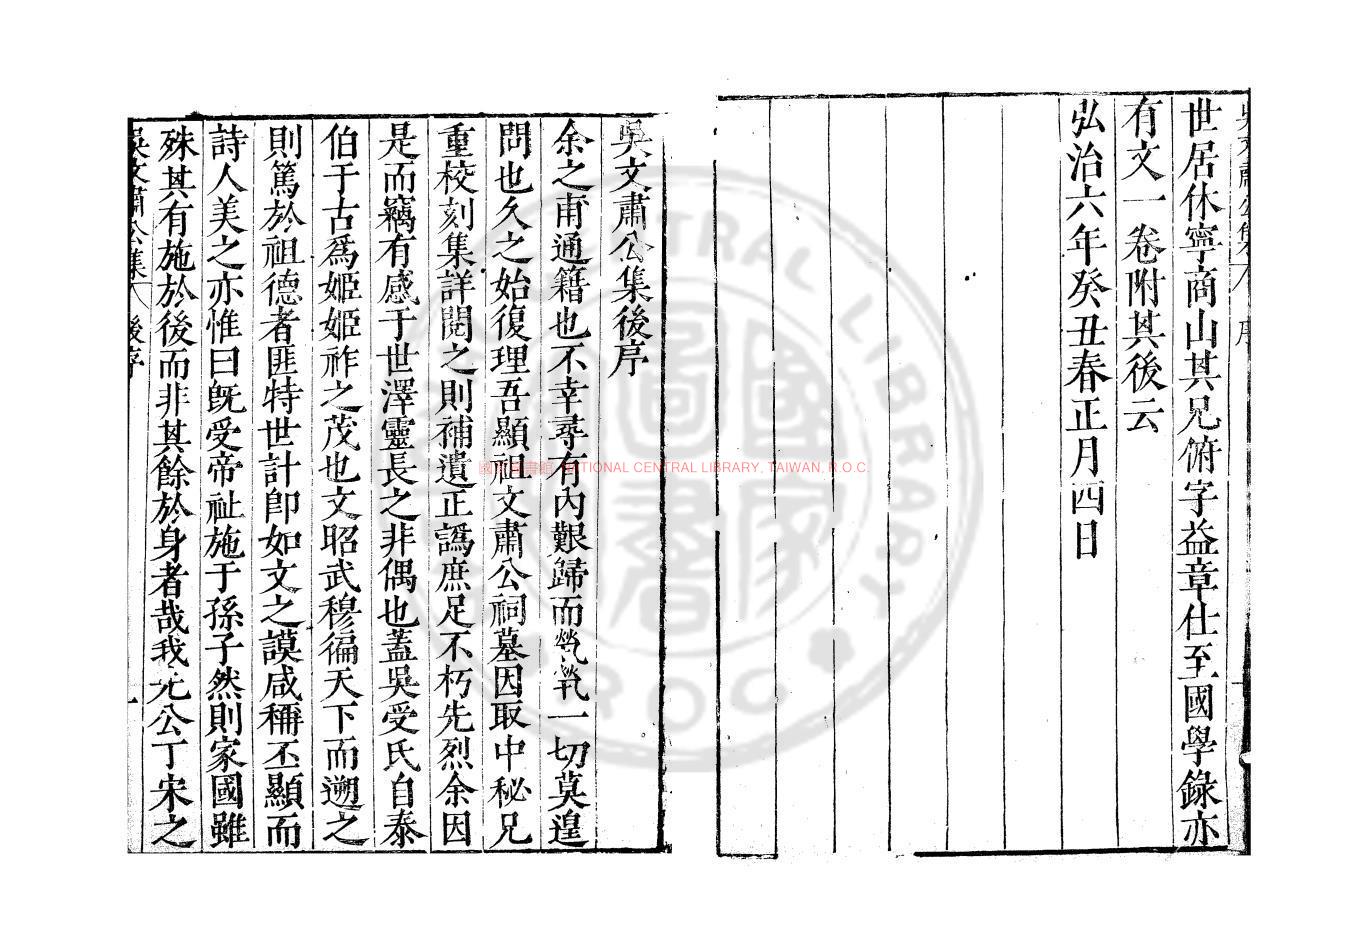 世居休寧商山其兄俯字益章仕至國學錄亦
有文一卷附其後云
弘治六年癸丑春正月四日
吳文肅公集後序
余之甫通籍也不幸尋有內艱歸而煢煢一切莫遑
問也久之始復理吾顯祖文肅公祠墓因取中秘兄
重校刻集詳閱之則補遺正譌庶足不朽先烈余因
是而竊有感于世澤靈長之非偶也蓋吳受氏自泰
伯于古為姬姬祚之茂也文昭武穆徧天下而遡之
則篤於祖德者匪特世計卽如文之謨咸稱丕顯而
詩人美之亦惟曰旣受帝祉施于孫子然則家國雖
殊其有施於後而非其餘於身者哉我先公丁宋之
吳文肅公集 後序 一
國家圖書館, NATIONAL CENTRAL LIBRARY, TAIWAN, R.O.C.
CENTRAL LIBRARY
R.O.C.